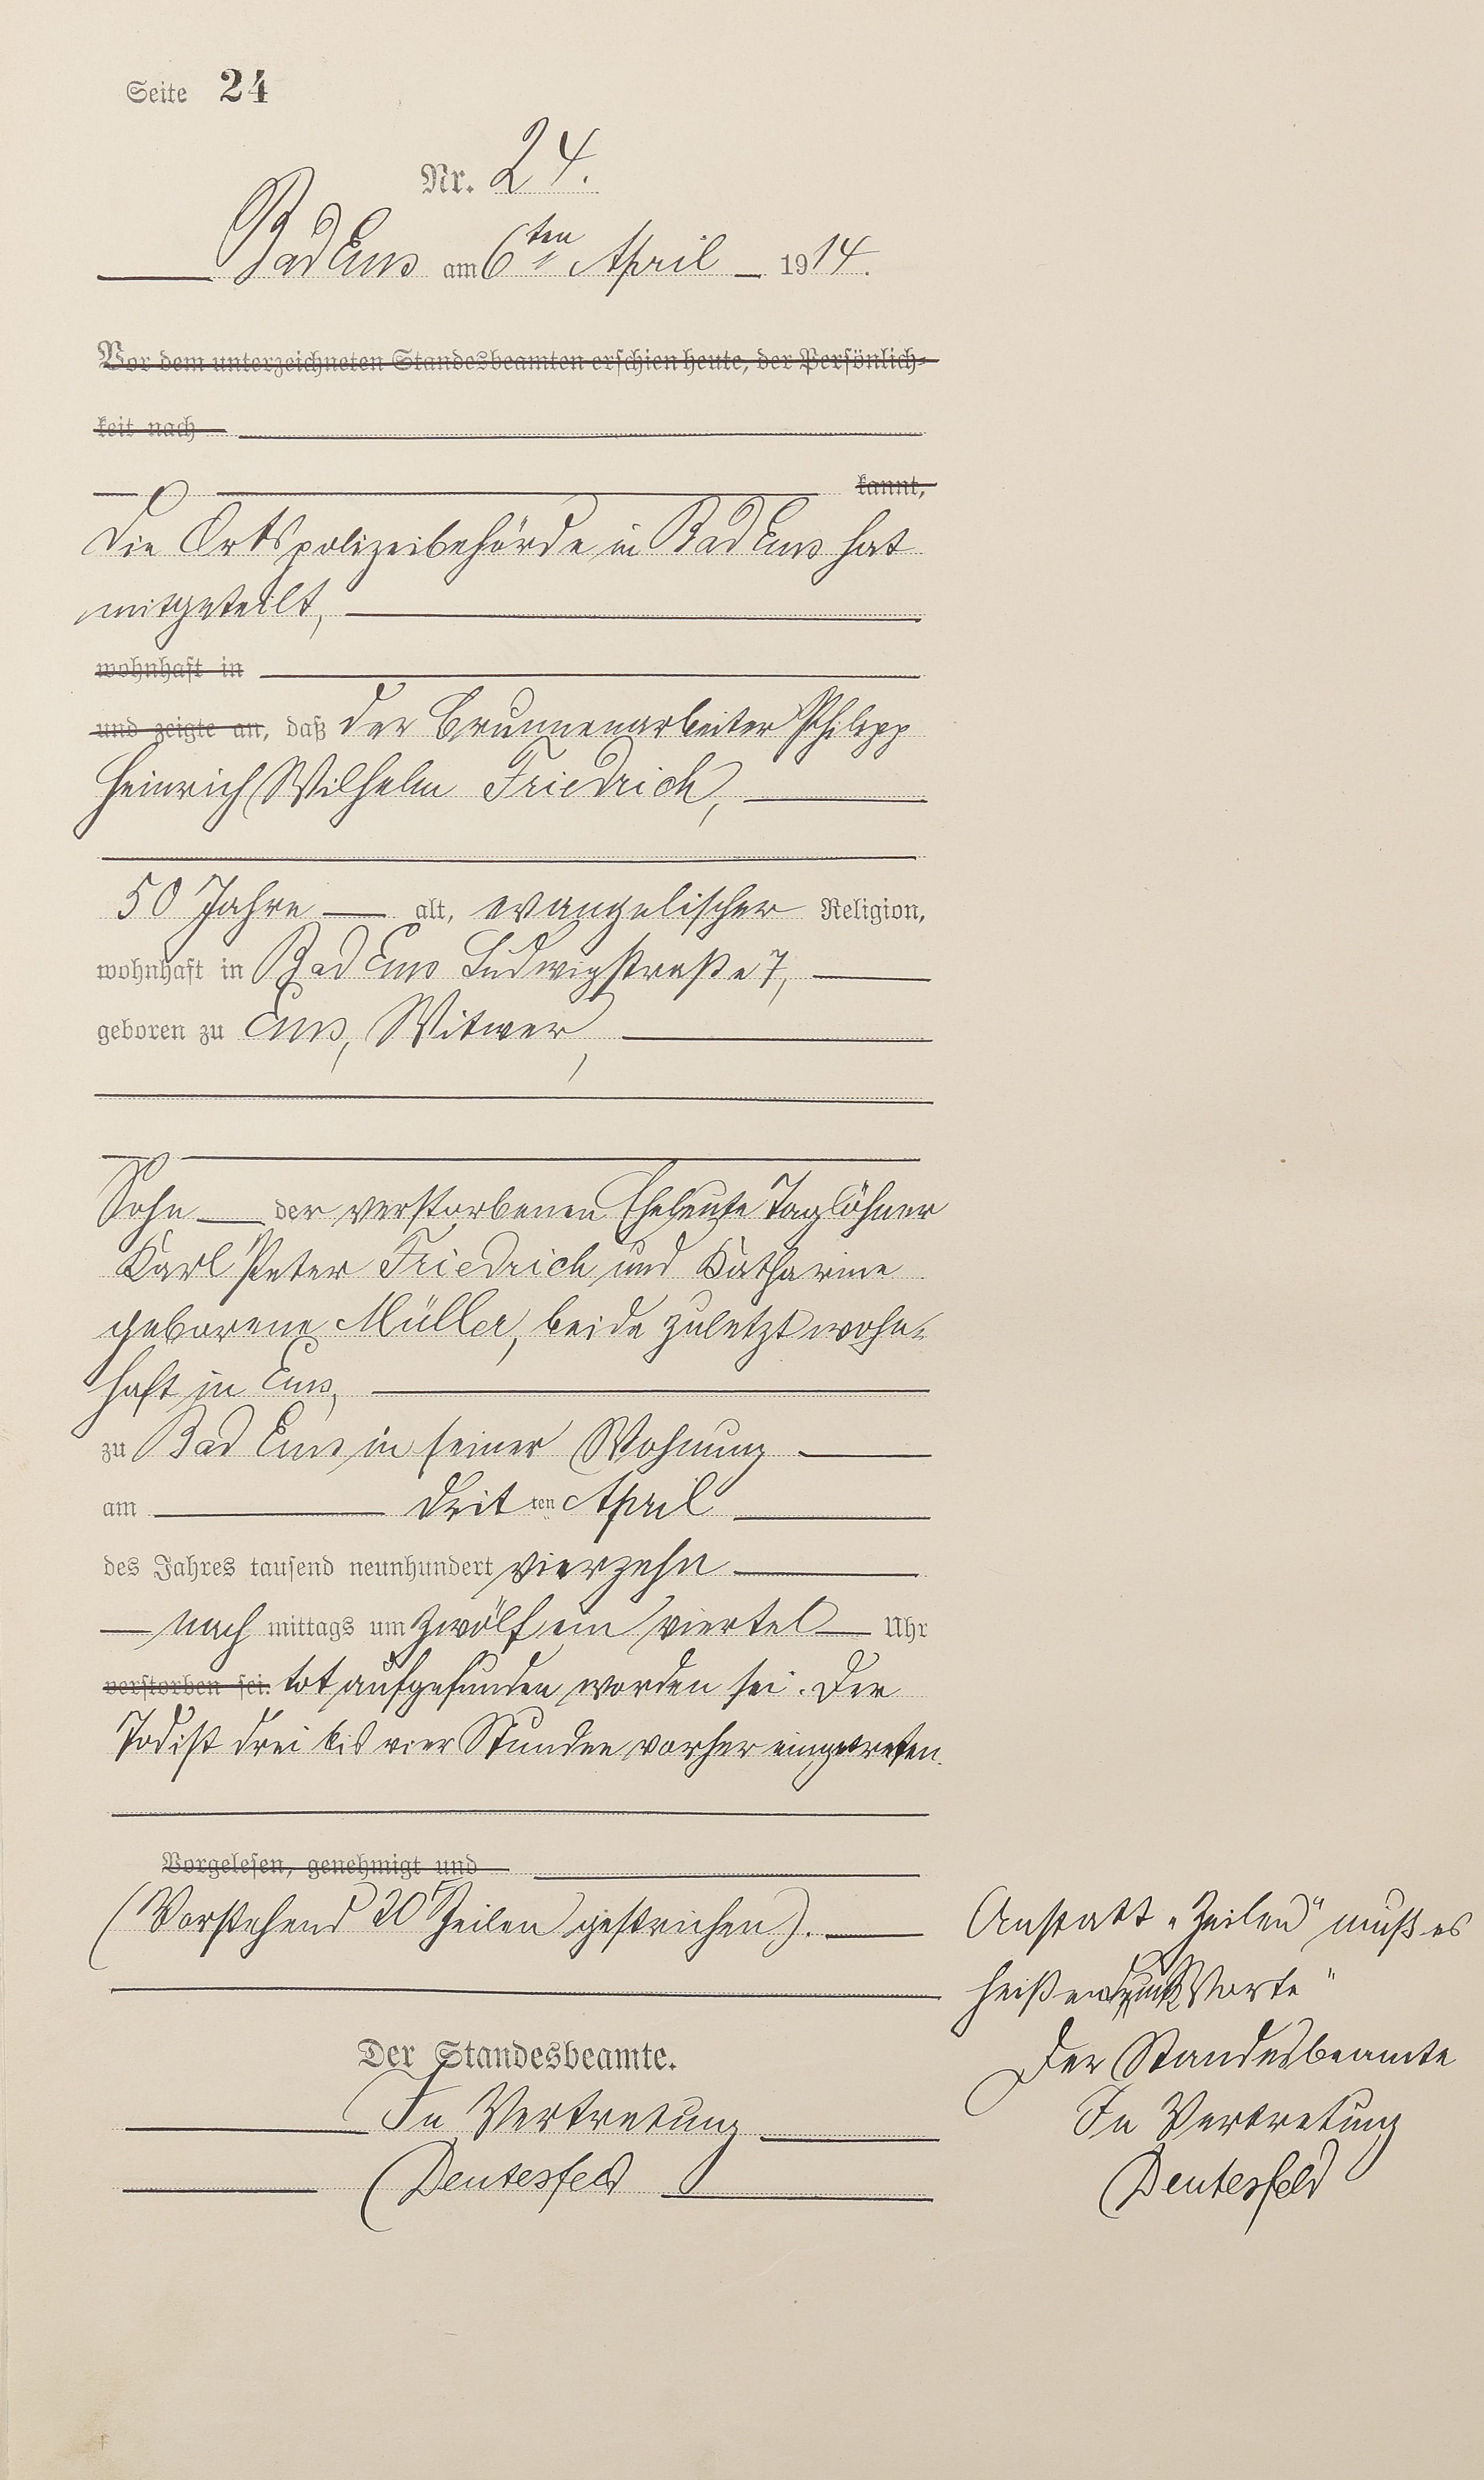 Seite 24
Nr. 24.
Bad Ems am 6ten April 1914.
Vor dem unterzeichneten Standesbeamten erschien heute, der Persönlich-
keit nach
kannt,
Die Ortspolizeibehörde in Bad Ems hat
mitgeteilt,
wohnhaft in
und zeigte an, daß der Brunnenarbeiter Philipp
Heinrich Wilhelm Friedrich,
50 Jahre alt, evangelischer Religion,
wohnhaft in Bad Ems Ludwigstraße 7,
geboren zu Ems, Witwer,
Sohn der verstorbenen Eheleute Taglöhner
Karl Peter Friedrich und Katharine
geborene Müller, beide zuletzt wohn-
haft in Ems,
zu Bad Ems in seiner Wohnung
am dritten April
des Jahres tausend neunhundert vierzehn
nach mittags um zwölf ein viertel Uhr
verstorben sei. tot aufgefunden worden sei. Der
Tod ist drei bis vier Stunden vorher eingetreten.
Vorgelesen, genehmigt und
(Vorstehend 20 Zeilen gestrichen).
Anstatt "Zeilen" muß es
heißen Druckworte"
Der Standesbeamte
In Vertretung
Deutesfeld
Der Standesbeamte.
In Vertretung
Deutesfeld